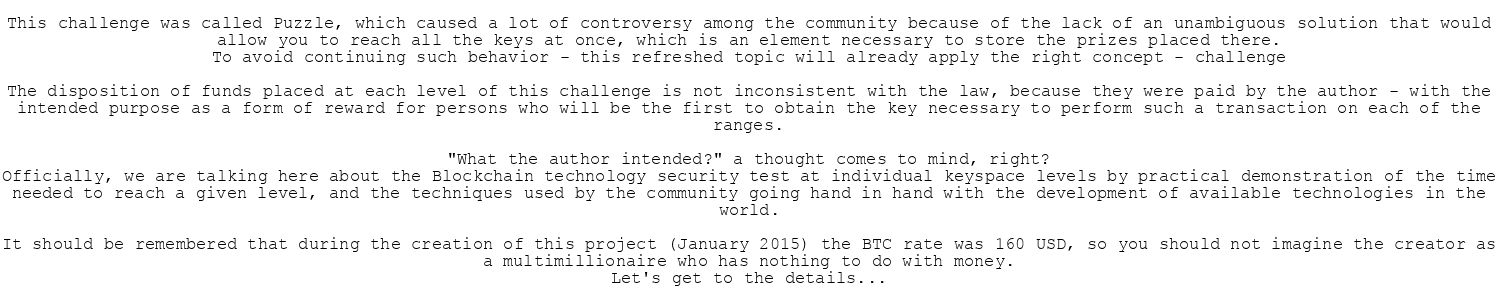 This challenge was called Puzzle, which caused a lot of controversy among the community because of the lack of an unambiguous solution that would
allow you to reach all the keys at once, which is an element necessary to store the prizes placed there.
To avoid continuing such behavior - this refreshed topic will already apply the right concept - challenge
The disposition of funds placed at each level of this challenge is not inconsistent with the law, because they were paid by the author - with the
intended purpose as a form of reward for persons who will be the first to obtain the key necessary to perform such a transaction on each of the
ranges.
"What the author intended?" a thought comes to mind, right?
Officially, we are talking here about the Blockchain technology security test at individual keyspace levels by practical demonstration of the time
needed to reach a given level, and the techniques used by the community going hand in hand with the development of available technologies in the
world.
It should be remembered that during the creation of this project (January 2015) the BTC rate was 160 USD, so you should not imagine the creator as
a multimillionaire who has nothing to do with money.
Let's get to the details...